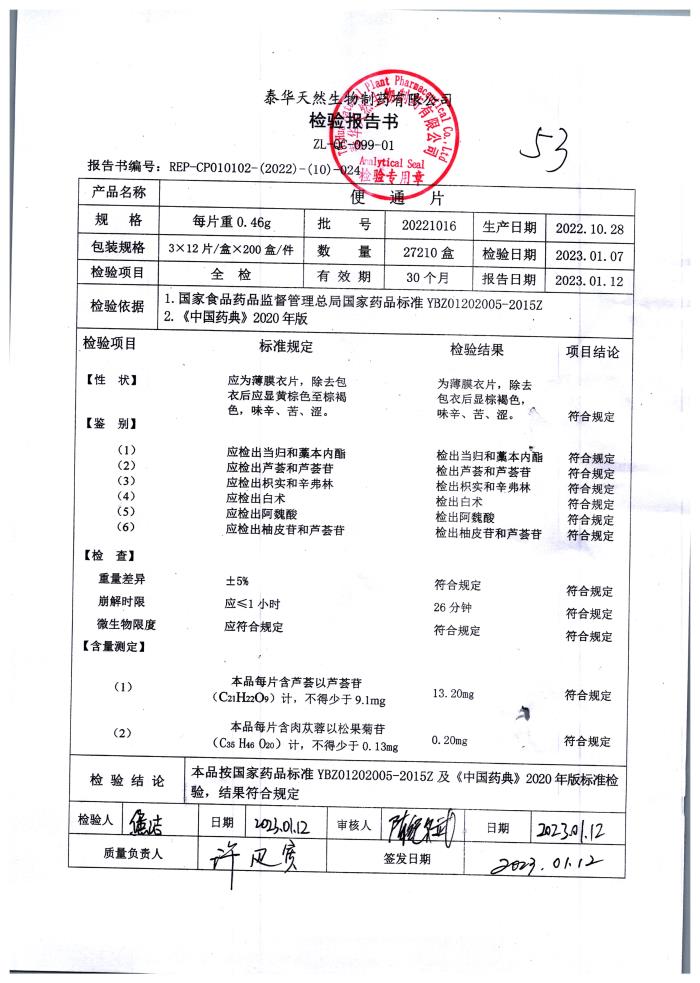 泰华天然生物制药有限公司
检验报告书
ZL-QC-099-01
Plant Pharmaceutical Co., Ltd
Analytical Seal
检验专用章
53
报告书编号：REP-CP010102-(2022)-(10)-024
产品名称 便 通 片
规 格 每片重 0.46g 批 号 20221016 生产日期 2022.10.28
包装规格 3×12 片/盒×200 盒/件 数 量 27210 盒 检验日期 2023.01.07
检验项目 全 检 有 效 期 30 个月 报告日期 2023.01.12
检验依据 1. 国家食品药品监督管理总局国家药品标准 YBZ01202005-2015Z
2. 《中国药典》2020 年版
检验项目 标准规定 检验结果 项目结论
【性 状】 应为薄膜衣片，除去包 为薄膜衣片，除去
衣后应显黄棕色至棕褐 包衣后显棕褐色，
色，味辛、苦、涩。 味辛、苦、涩。 符合规定
【鉴 别】
(1) 应检出当归和藁本内酯 检出当归和藁本内酯 符合规定
(2) 应检出芦荟和芦荟苷 检出芦荟和芦荟苷 符合规定
(3) 应检出枳实和辛弗林 检出枳实和辛弗林 符合规定
(4) 应检出白术 检出白术 符合规定
(5) 应检出阿魏酸 检出阿魏酸 符合规定
(6) 应检出柚皮苷和芦荟苷 检出柚皮苷和芦荟苷 符合规定
【检 查】
重量差异 ±5% 符合规定 符合规定
崩解时限 应≤1 小时 26 分钟 符合规定
微生物限度 应符合规定 符合规定 符合规定
【含量测定】
(1) 本品每片含芦荟以芦荟苷
（C21H22O9）计，不得少于 9.1mg 13.20mg 符合规定
(2) 本品每片含肉苁蓉以松果菊苷
（C35 H46 O20）计，不得少于 0.13mg 0.20mg 符合规定
检 验 结 论 本品按国家药品标准 YBZ01202005-2015Z 及《中国药典》2020 年版标准检
验，结果符合规定
检验人 日期 2023.01.12 审核人 日期 2023.01.12
质量负责人 签发日期 2023.01.12